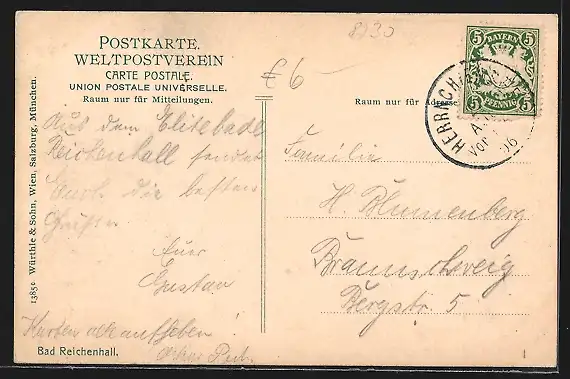 8230
POSTKARTE.
WELTPOSTVEREIN
CARTE POSTALE.
UNION POSTALE UNIVERSELLE.
Raum nur für Mitteilungen.
€ 6 –
Raum nur für Adresse
5 BAYERN 5
5 PFENNIG 5
HERRNCH
VOR
06
Aus dem Elitebade
Reichenhall sendet
Euch die besten
Grüße
Euer
Gustav
Karten alle aufheben!
Familie
H. Blumenberg
Braunschweig
Bergstr 5
Bad Reichenhall.
13850 Würthle & Sohn, Wien, Salzburg, München.